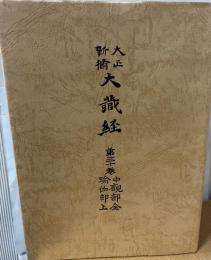 大正
新脩
大藏経
第三十巻
中観部全
瑜伽部上